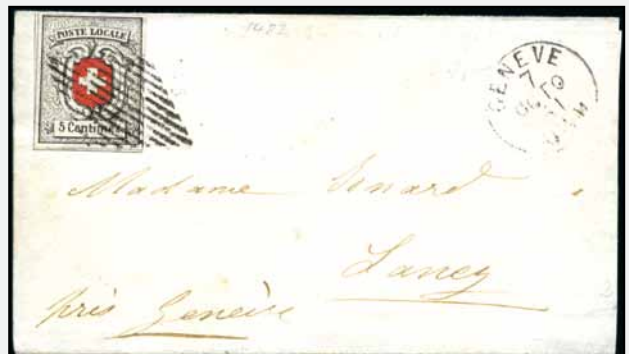 POSTE LOCALE
5 Centimes
1422
GENEVE
7
Madame
Lancy
près Genève